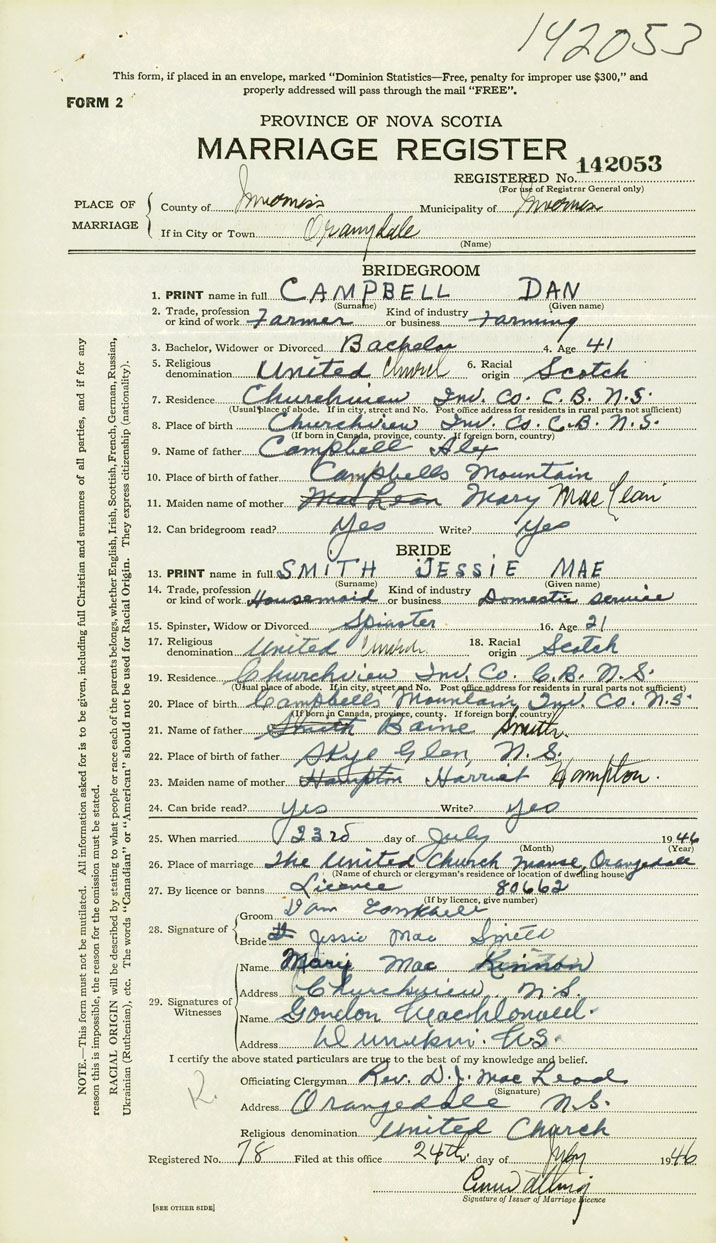 142053
This form, if placed in an envelope, marked "Dominion Statistics—Free, penalty for improper use $300," and
properly addressed will pass through the mail "FREE".
FORM 2
PROVINCE OF NOVA SCOTIA
MARRIAGE REGISTER
REGISTERED No. 142053
(For use of Registrar General only)
PLACE OF MARRIAGE
County of Inverness Municipality of Inverness
If in City or Town Orangedale
(Name)
BRIDEGROOM
1. PRINT name in full CAMPBELL DAN
(Surname) (Given name)
2. Trade, profession or kind of work Farmer Kind of industry or business Farming
3. Bachelor, Widower or Divorced Bachelor 4. Age 41
5. Religious denomination United Church 6. Racial origin Scotch
7. Residence Churchview Inv. Co. C.B. N.S.
(Usual place of abode. If in city, street and No. Post office address for residents in rural parts not sufficient)
8. Place of birth Churchview Inv. Co. C.B. N.S.
(If born in Canada, province, county. If foreign born, country)
9. Name of father Campbell Alex
10. Place of birth of father Campbells Mountain
11. Maiden name of mother MacLean Mary MacLean
12. Can bridegroom read? Yes Write? Yes
BRIDE
13. PRINT name in full SMITH JESSIE MAE
(Surname) (Given name)
14. Trade, profession or kind of work Housemaid Kind of industry or business Domestic service
15. Spinster, Widow or Divorced Spinster 16. Age 21
17. Religious denomination United Church 18. Racial origin Scotch
19. Residence Churchview Inv. Co. C.B. N.S.
(Usual place of abode. If in city, street and No. Post office address for residents in rural parts not sufficient)
20. Place of birth Campbells Mountain, Inv. Co. N.S.
(If born in Canada, province, county. If foreign born, country)
21. Name of father Smith Baine Smith
22. Place of birth of father Skye Glen, N.S.
23. Maiden name of mother Hampton Harriet Hampton.
24. Can bride read? yes Write? yes
25. When married 23rd day of July 1946
(Month) (Year)
26. Place of marriage The United Church manse, Orangedale
(Name of church or clergyman's residence or location of dwelling house)
27. By licence or banns Licence 80662
(If by licence, give number)
28. Signature of
Groom Dan Campbell
Bride Jessie Mae Smith
29. Signatures of Witnesses
Name Mary MacKinnon
Address Churchview N.S.
Name Gordon
Address N.S.
I certify the above stated particulars are true to the best of my knowledge and belief.
Officiating Clergyman Rev. D. J. MacLeod
(Signature)
Address Orangedale N.S.
Religious denomination United Church
Registered No. 78 Filed at this office 24th day of July 1946
Signature of Issuer of Marriage Licence
[SEE OTHER SIDE]
NOTE.—This form must not be mutilated. All information asked for is to be given, including full Christian and surnames of all parties, and if for any
reason this is impossible, the reason for the omission must be stated.
RACIAL ORIGIN will be described by stating to what people or race each of the parents belongs, whether English, Irish, Scottish, French, German, Russian,
Ukrainian (Ruthenian), etc. The words "Canadian" or "American" should not be used for Racial Origin. They express citizenship (nationality).